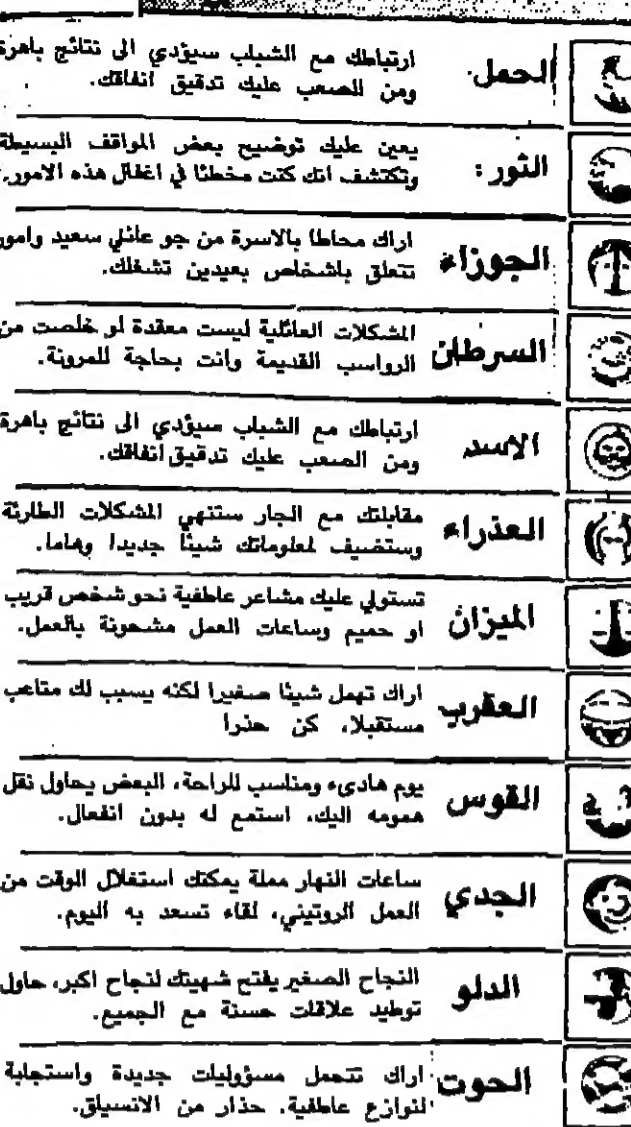 الحمل
ارتباطك مع الشباب سيؤدي الى نتائج باهرة
ومن الصعب عليك تدقيق انفاقك.
الثور :
يعين عليك توضيح بعض المواقف البسيطة
وتكتشف انك كنت مخطئا في اغفال هذه الامور.
الجوزاء
اراك محاطا بالاسرة من جو عائلي سعيد وامور
تتعلق باشخاص بعيدين تشغلك.
السرطان
المشكلات العائلية ليست معقدة لو خلصت من
الرواسب القديمة وانت بحاجة للمرونة.
الاسد
ارتباطك مع الشباب سيؤدي الى نتائج باهرة
ومن الصعب عليك تدقيق انفاقك.
العذراء
مقابلتك مع الجار ستنهي المشكلات الطارئة
وستضيف لمعلوماتك شيئا جديدا وهاما.
الميزان
تستولي عليك مشاعر عاطفية نحو شخص قريب
او حميم وساعات العمل مشحونة بالعمل.
العقرب
اراك تهمل شيئا صغيرا لكنه يسبب لك متاعب
مستقبلا، كن حذرا
القوس
يوم هادىء ومناسب للراحة، البعض يحاول نقل
همومه اليك، استمع له بدون انفعال.
الجدي
ساعات النهار مملة يمكنك استغلال الوقت من
العمل الروتيني، لقاء تسعد به اليوم.
الدلو
النجاح الصغير يفتح شهيتك لنجاح اكبر، حاول
توطيد علاقات حسنة مع الجميع.
الحوت
اراك تتحمل مسؤوليات جديدة واستجابة
لنوازع عاطفية. حذار من الانسياق.